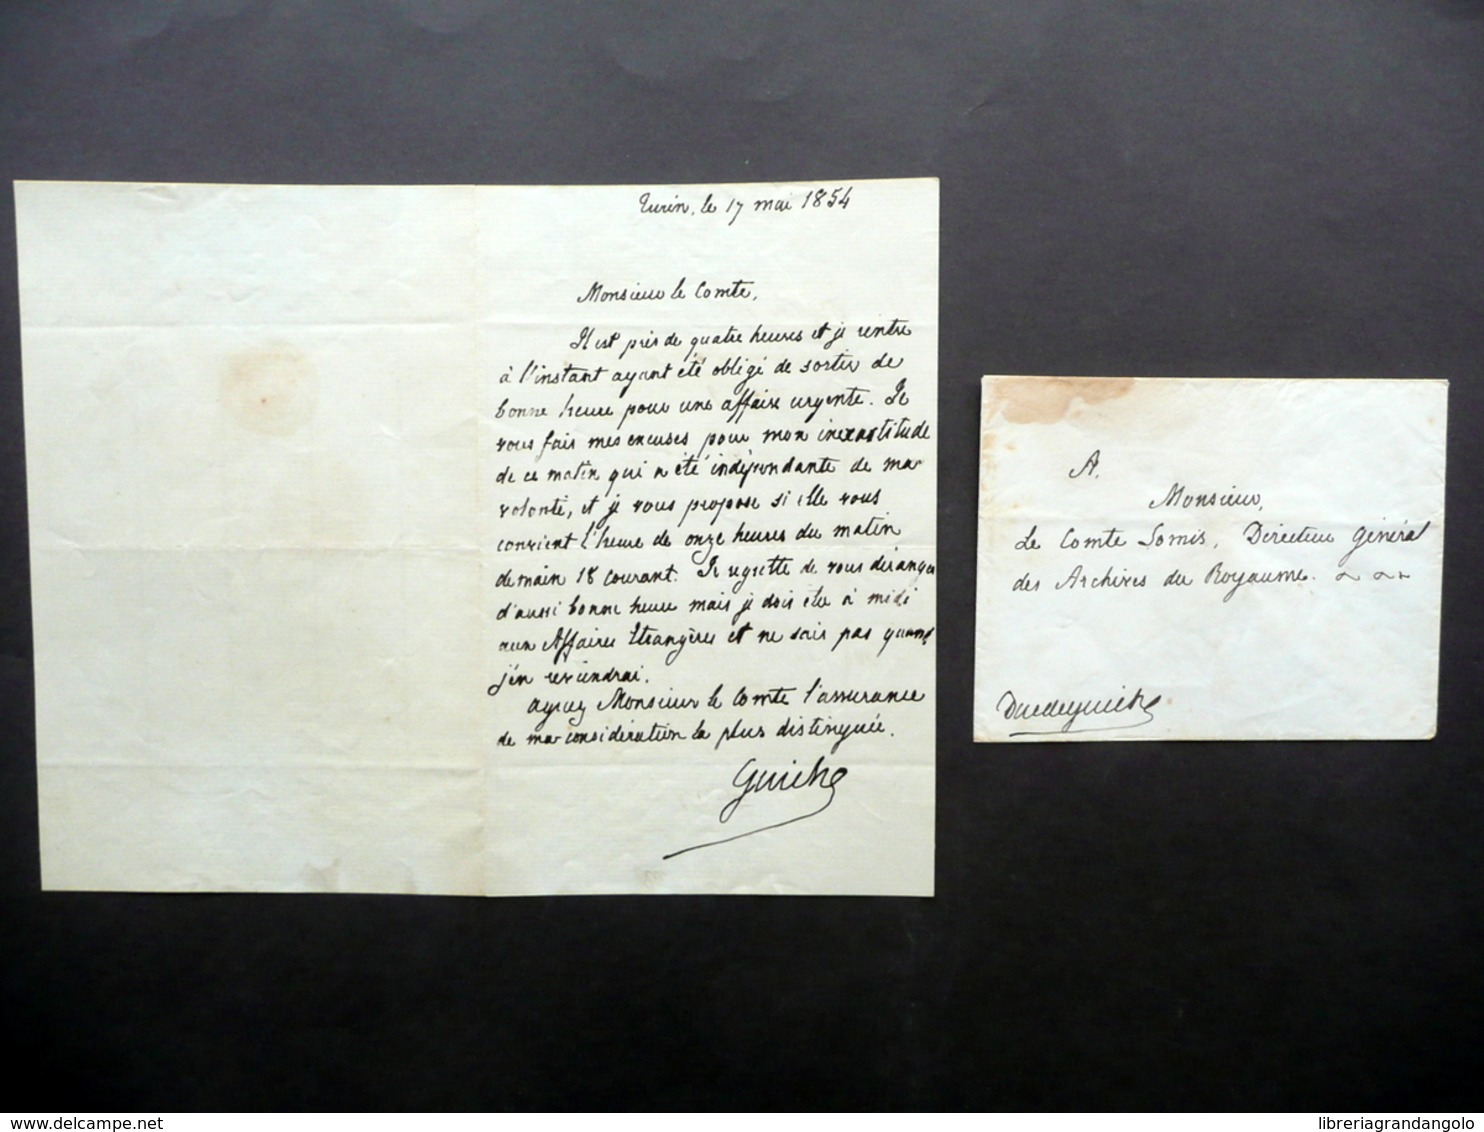 Turin, le 17 mai 1854
Monsieur le Comte,
Il est près de quatre heures et je rentre
à l'instant ayant été obligé de sortir de
bonne heure pour une affaire urgente. Je
vous fais mes excuses pour mon inexactitude
de ce matin qui a été indépendante de ma
volonté, et je vous propose si elle vous
convient l'heure de onze heures du matin
demain 18 courant. Je regrette de vous déranger
d'aussi bonne heure mais je dois être à midi
aux Affaires Etrangères et ne sais pas quand
j'en reviendrai.
Agréez Monsieur le Comte l'assurance
de ma considération la plus distinguée.
Guiche
A.
Monsieur,
Le Comte Somis, Directeur Général
des Archives du Royaume.
Duc de Guiche
delcampe.net
libreriagrandangolo